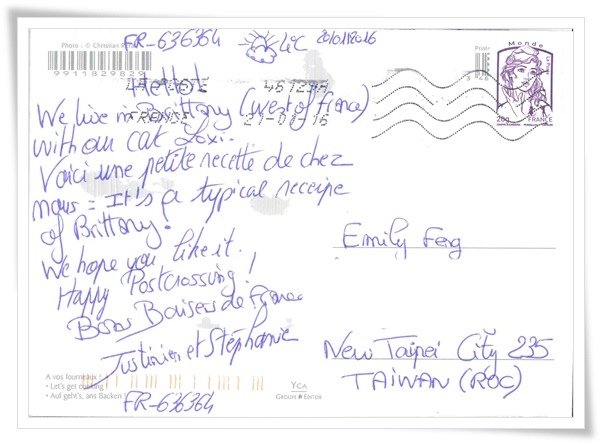 FR-636364
4°C
20/01/2016
Photo : © Christian
9911829829
Hello!
LA POSTE
46129A
FRANCE
21-01-16
We live in Brittany (west of France)
with our cat Loxi.
Voici une petite recette de chez
nous = It's a typical receipe
of Brittany.
We hope you like it.
Happy Postcrossing!
Bons Baisers de France
Justinien et Stéphanie
A vos fourneaux !
• Let's get cooking !
• Auf geht's, ans Backen !
YCA
GROUPE EDITOR
FR-636364
Monde
20g
FRANCE
Emily Feng
New Taipei City 235
TAIWAN (ROC)